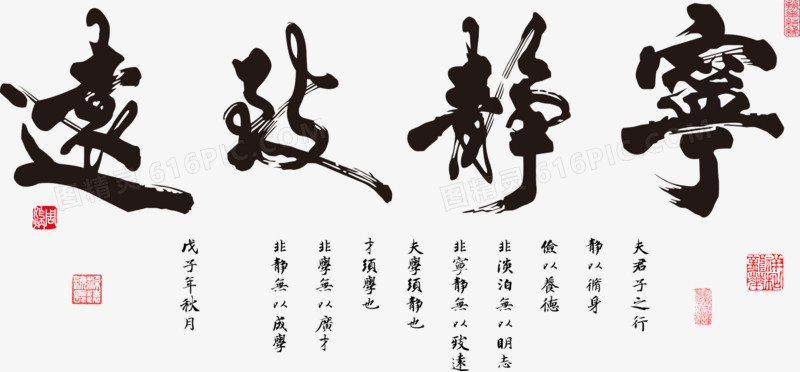 寧靜致遠
夫君子之行
靜以脩身
儉以養德
非淡泊無以明志
非寧靜無以致遠
夫學須靜也
才須學也
非學無以廣才
非靜無以成學
戊子年秋月
图精灵 616PIC.COM